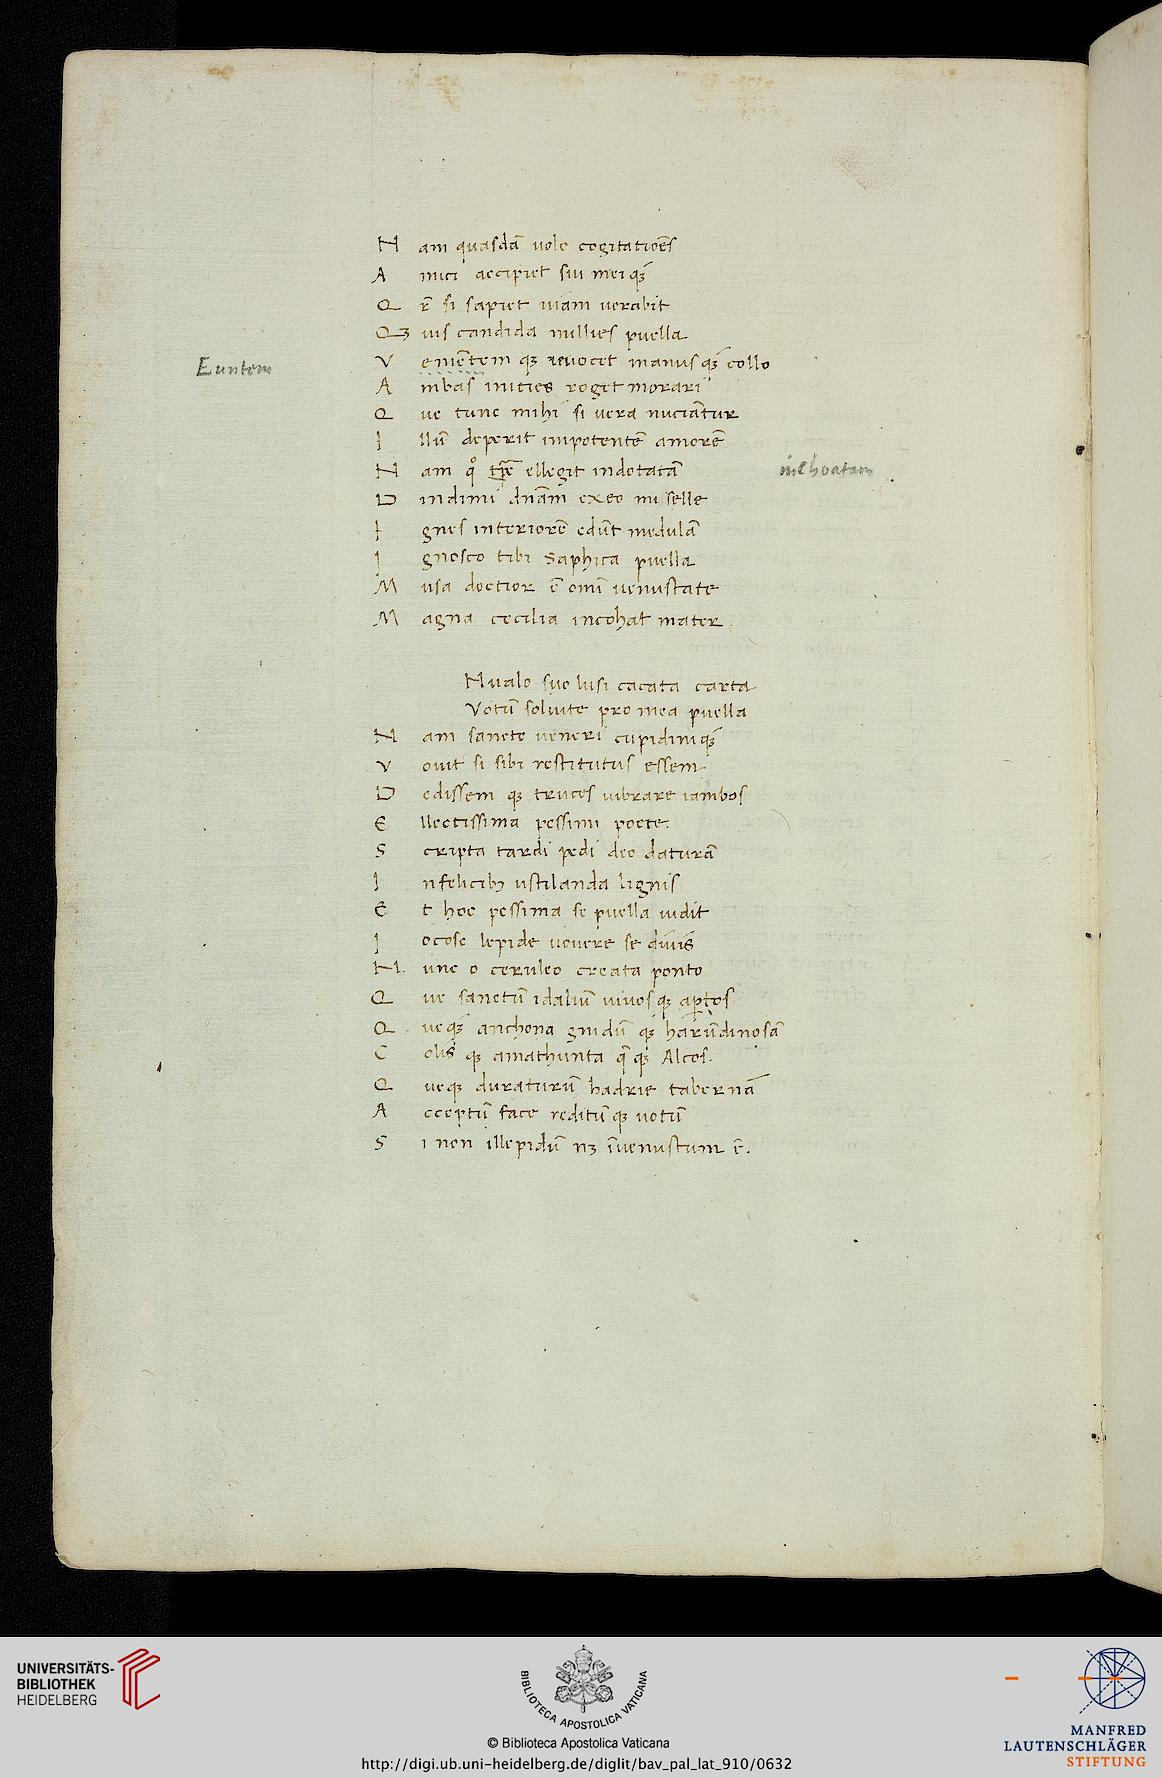 N am quasdā uolo cogitatiōes
A mici accipiet sui mei qꝫ
Q r̄ si sapiet uiam uorabit
Q uis candida millies puella
V eniētem qꝫ reuocet manus qꝫ collo
Euntem
A mbas inities roget morari
Q ue tunc mihi si uera nuciātur
I llū deperit impotentē amorē
N am qͦ tp̄re ellegit indotatā
inchoatam
D indimi dn̄am exeo miselle
I gnes interiorē edūt medulā
I gnosco tibi saphica puella
M usa doctior ē om̄i uenustate
M agna cecilia incohat mater.
Nualo suo lusi cacata carta
Votū soluite pro mea puella
N am sancte ueneri cupidini qꝫ
V ouit si sibi restitutus essem
D edissem qꝫ truces uibrare iambos
E llectissima pessimi poete.
S cripta tardi pedi deo daturā
I nfelicibꝫ ustilanda lignis
E t hoc pessima se puella uidit
I ocose lepide uouere se diuis
N unc o ceruleo creata ponto
Q ue sanctū idaliū uiuos qꝫ aptos
Q ue qꝫ anchona gnidū qꝫ harūdinosā
C olis qꝫ amathunta q̄ qꝫ Alcos.
Q ue qꝫ duraturū hadrie tabernā
A cceptū face reditū qꝫ uotū
S i non illepidū nꝫ īuenustum ē.
UNIVERSITÄTS-
BIBLIOTHEK
HEIDELBERG
BIBLIOTECA APOSTOLICA VATICANA
© Biblioteca Apostolica Vaticana
http://digi.ub.uni-heidelberg.de/diglit/bav_pal_lat_910/0632
MANFRED
LAUTENSCHLÄGER
STIFTUNG